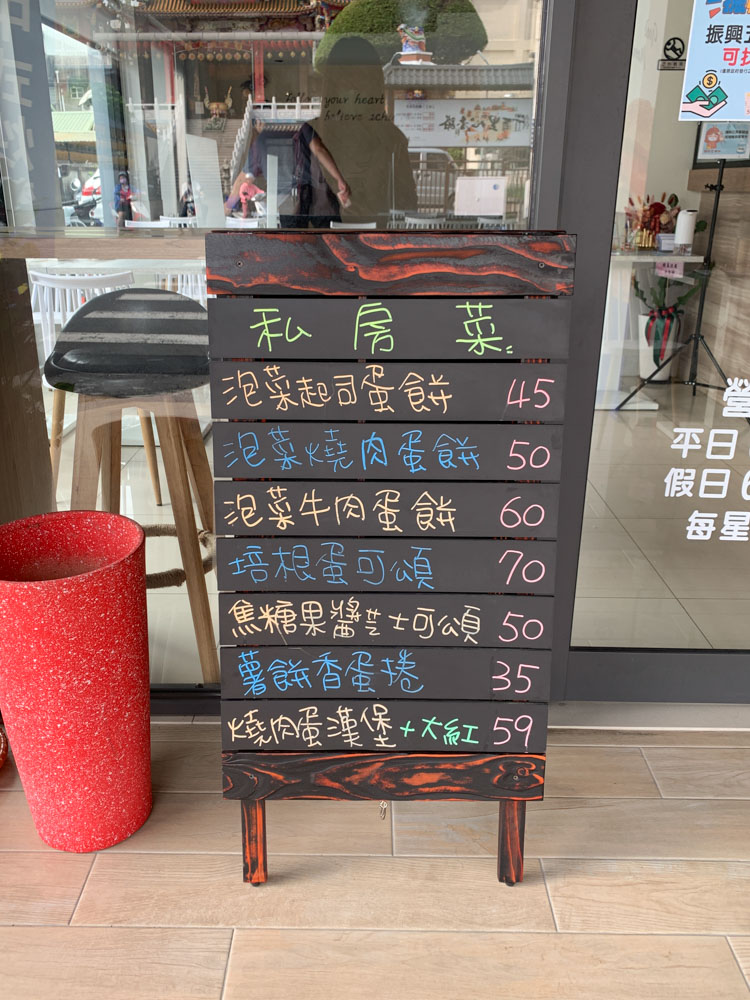 私房菜
泡菜起司蛋餅 45
泡菜燒肉蛋餅 50
泡菜牛肉蛋餅 60
培根蛋可頌 70
焦糖果醬芝士可頌 50
薯餅香蛋捲 35
燒肉蛋漢堡+大紅 59
your heart
振興五
可
營
平日
假日 6
每星